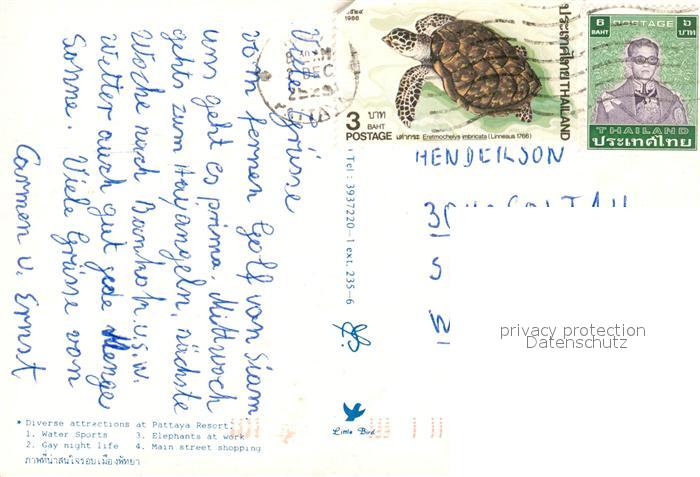 Viele Grüsse
vom fernen Golf von Siam
uns geht es prima. Mittwoch
gehts zum Haiangeln, nächste
Woche nach Bankok u.s.w.
Wetter auch gut jede Menge
Sonne. Viele Grüsse von
Carmen u. Ernst
* Diverse attractions at Pattaya Resort.
1. Water Sports 3. Elephants at work
2. Gay night life 4. Main street shopping
ภาพที่น่าสนใจรอบเมืองพัทยา
Tel : 3937220-1 ext. 235-6
Little Bird
1986
3 บาท
BAHT
POSTAGE
เต่ากระ Eretmochelys imbricata (Linneaus 1766)
ประเทศไทย THAILAND
6 POSTAGE ๖
BAHT บาท
THAILAND
ประเทศไทย
HENDERSON
privacy protection
Datenschutz